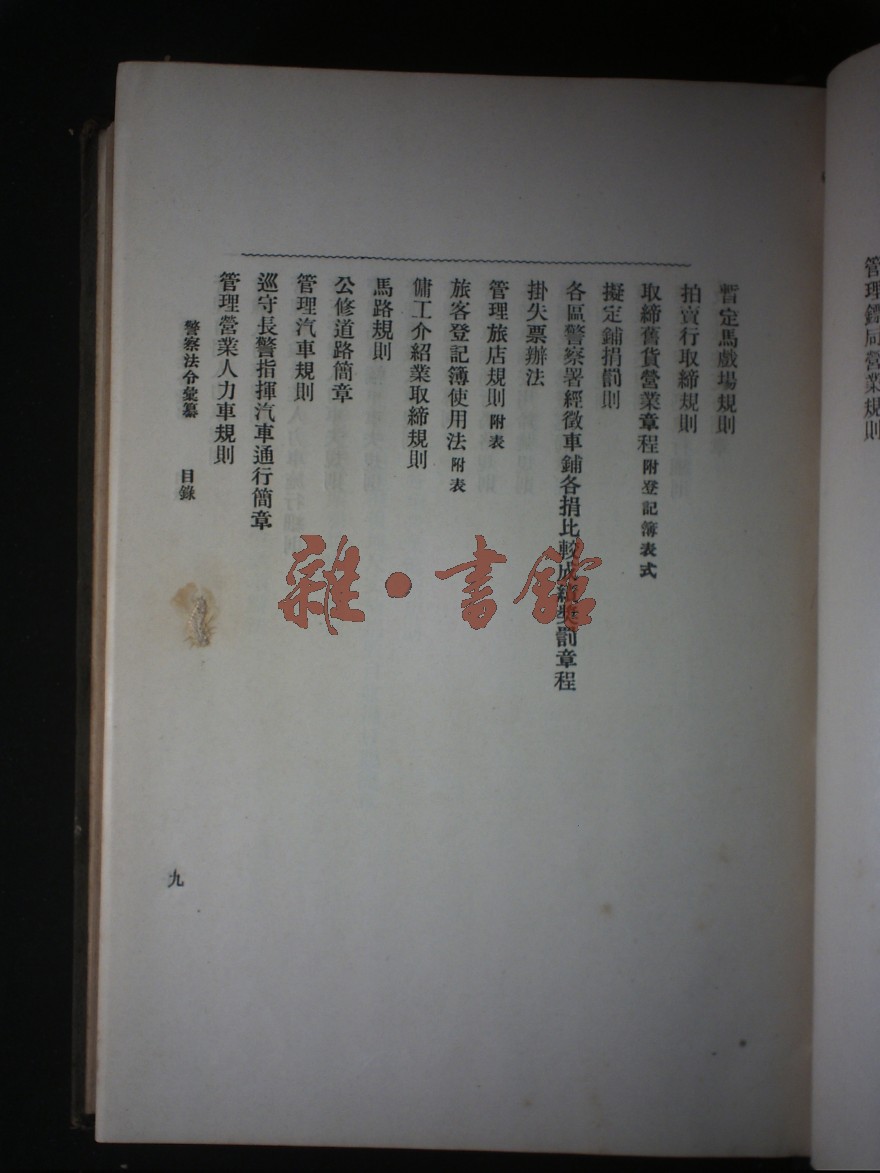 管理鏢局營業規則
暫定馬戲場規則
拍賣行取締規則
取締舊貨營業章程 附登記簿表式
擬定鋪捐罰則
各區警察署經徵車鋪各捐比較成績獎罰章程
掛失票辦法
管理旅店規則 附表
旅客登記簿使用法 附表
傭工介紹業取締規則
馬路規則
公修道路簡章
管理汽車規則
巡守長警指揮汽車通行簡章
管理營業人力車規則
警察法令彙纂 目錄
九
雜·書館